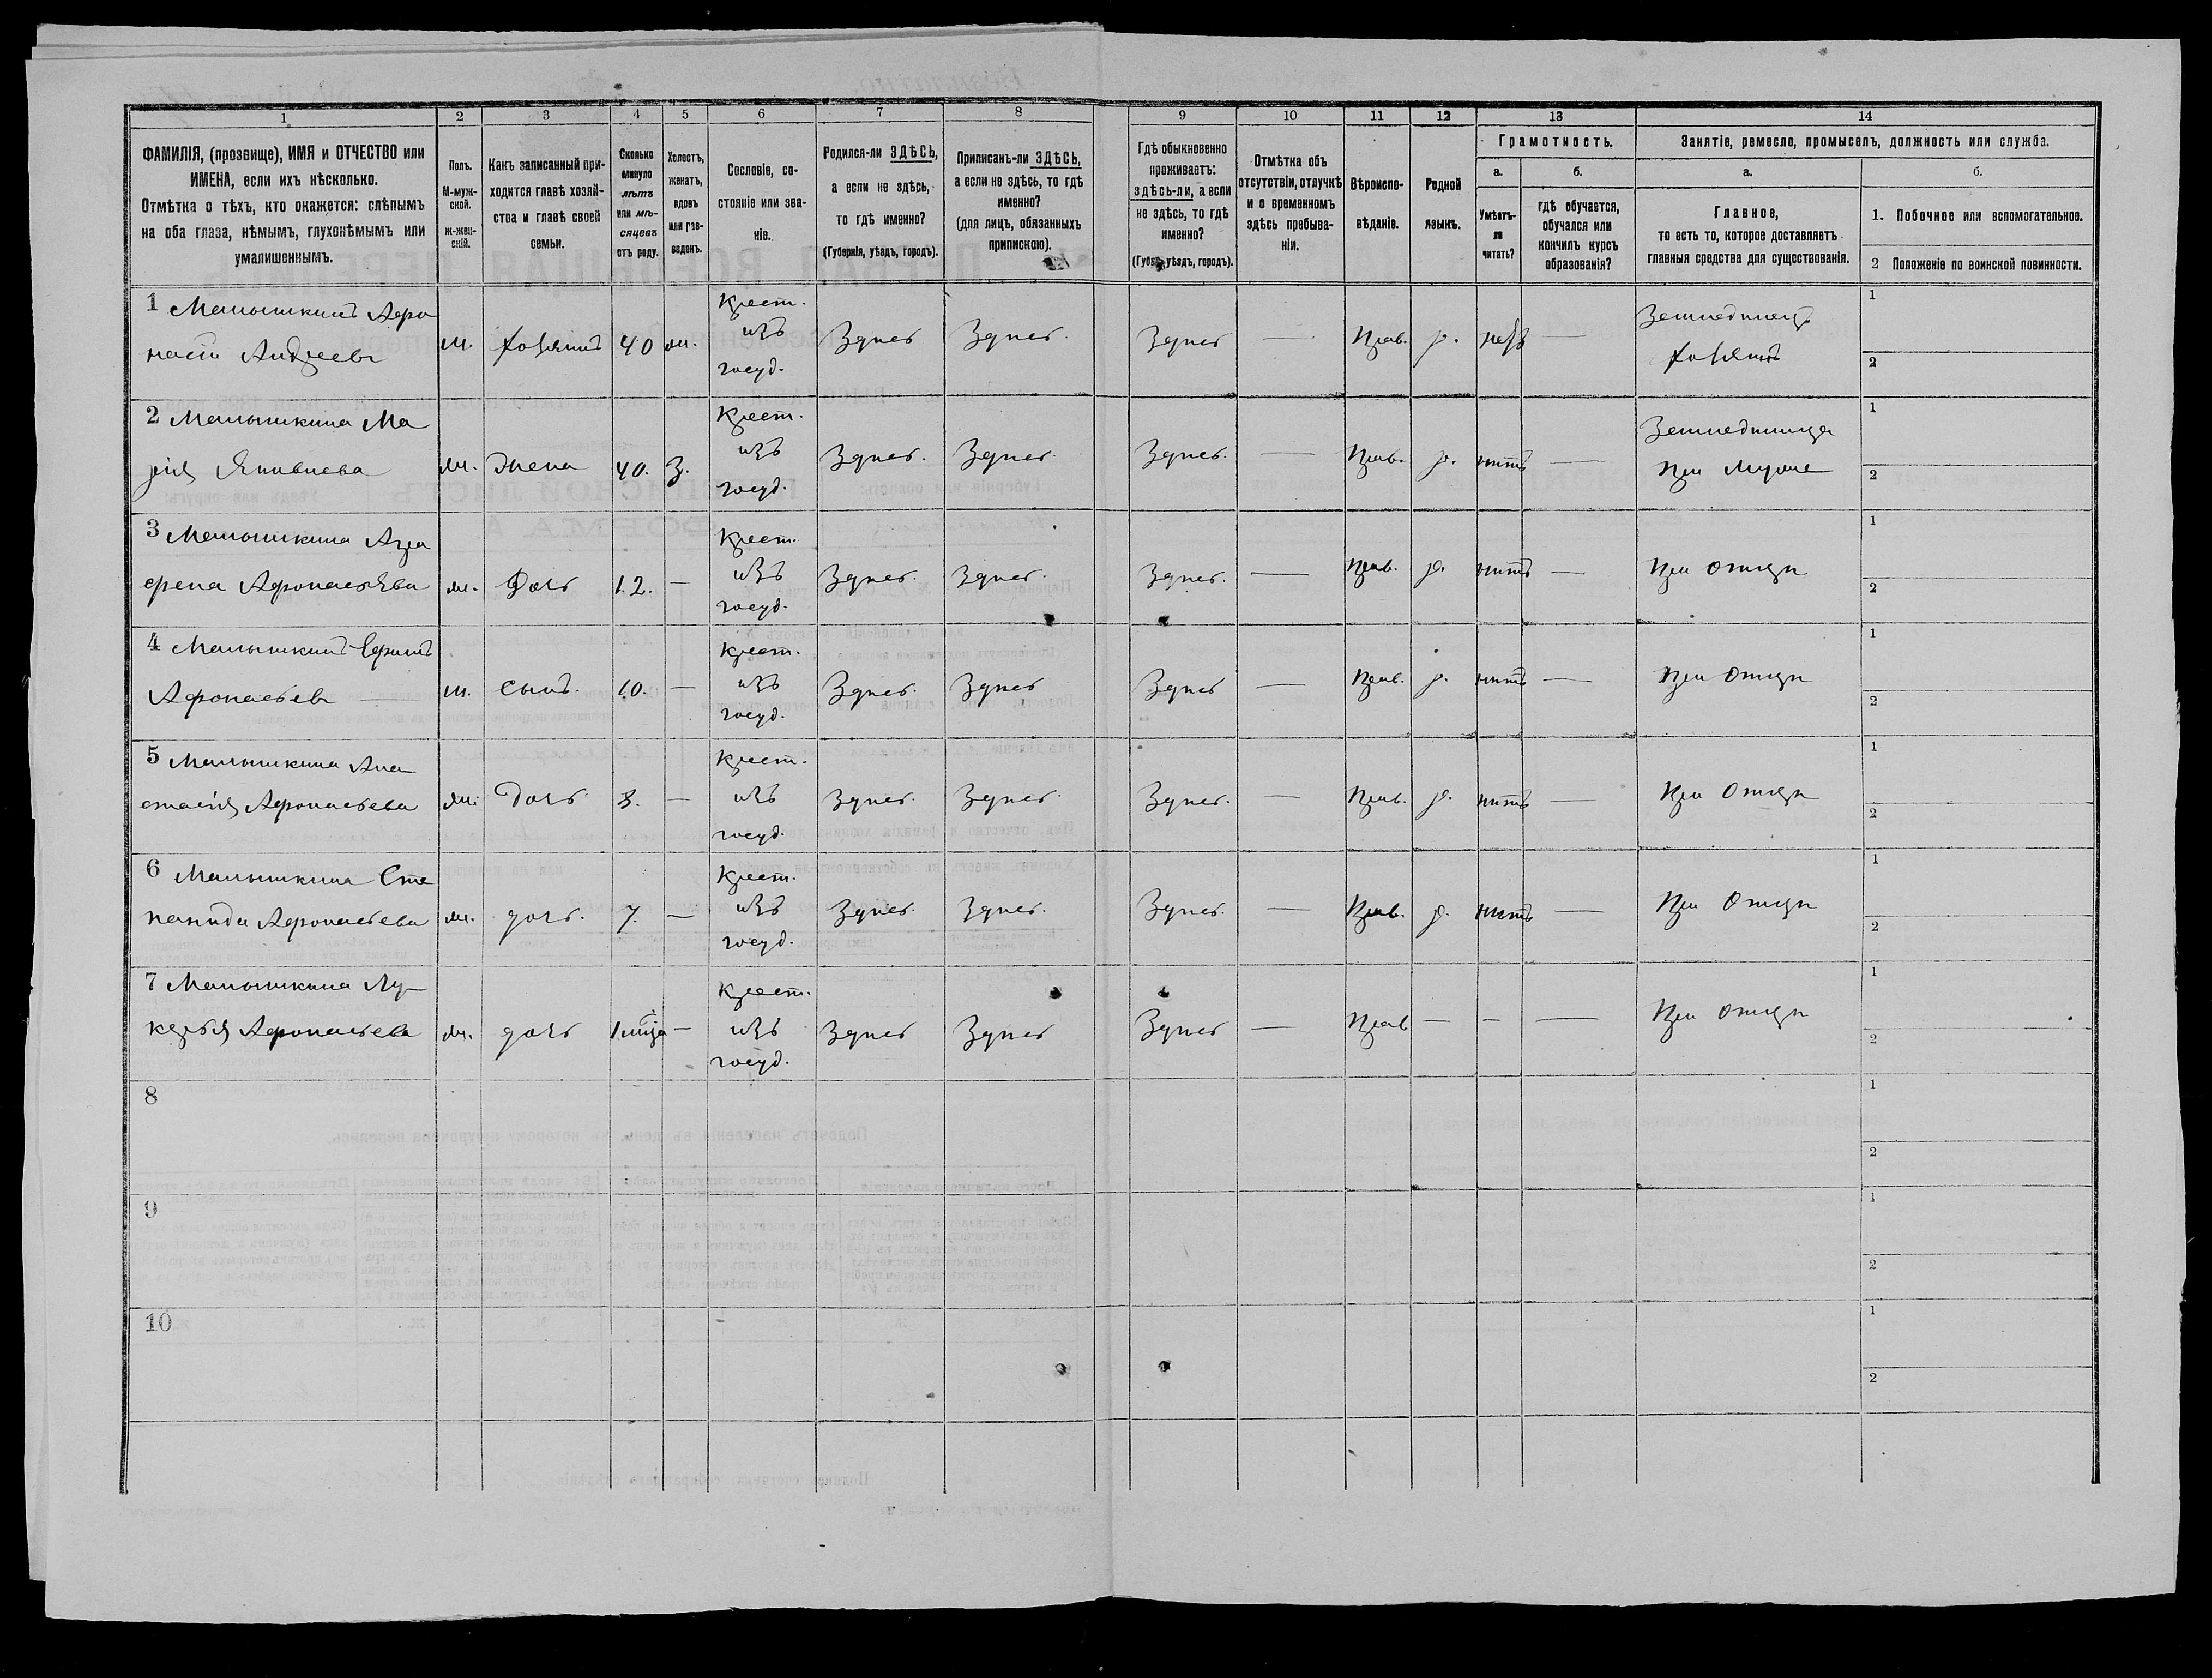 1 2 3 4 5 6 7 8 9 10 11 12 13 14
ФАМИЛІЯ, (прозвище), ИМЯ и ОТЧЕСТВО или
ИМЕНА, если ихъ нѣсколько.
Отмѣтка о тѣхъ, кто окажется: слѣпымъ
на оба глаза, нѣмымъ, глухонѣмымъ или
умалишеннымъ.
Полъ.
М-муж-
ской.
ж-жен-
скій.
Какъ записанный при-
ходится главѣ хозяй-
ства и главѣ своей
семьи.
Сколько
минуло
лѣтъ
или мѣ-
сяцевъ
отъ роду.
Холостъ,
женатъ,
вдовъ
или раз-
веденъ.
Сословіе, со-
стояніе или зва-
ніе.
Родился-ли ЗДѢСЬ,
а если не здѣсь,
то гдѣ именно?
(Губернія, уѣздъ, городъ).
Приписанъ-ли ЗДѢСЬ,
а если не здѣсь, то гдѣ
именно?
(для лицъ, обязанныхъ
припискою).
Гдѣ обыкновенно
проживаетъ:
здѣсь-ли, а если
не здѣсь, то гдѣ
именно?
(Губер. уѣздъ, городъ).
Отмѣтка объ
отсутствіи, отлучкѣ
и о временномъ
здѣсь пребыва-
ніи.
Вѣроиспо-
вѣданіе.
Родной
языкъ.
Грамотность.
а. б.
Умѣетъ-
ли
читать?
гдѣ обучается,
обучался или
кончилъ курсъ
образованія?
Занятіе, ремесло, промыселъ, должность или служба.
а. б.
Главное,
то есть то, которое доставляетъ
главныя средства для существованія.
1. Побочное или вспомогательное.
2 Положеніе по воинской повинности.
1 Малышкинъ Афо
насій Андреевъ м. хозяинъ 40 ж. Крест. изъ госуд. Здѣсь Здѣсь. Здѣсь — Прав. р. — Земледѣлецъ хозяинъ 1 2
2 Малышкина Ма
рія ж. Жена 40. З. Крест. изъ госуд. Здѣсь. Здѣсь. Здѣсь. — Прав. р. нѣтъ — Земледѣлица При мужѣ 1 2
3 Малышкина Агра
фена Афонасьева ж. Дочь 12. — Крест. изъ госуд. Здѣсь. Здѣсь. Здѣсь. — Прав. р. нѣтъ — При отцѣ 1 2
4 Малышкинъ Ефимъ
Афонасьевъ — м. Сынъ. 10. — Крест. изъ госуд. Здѣсь. Здѣсь Здѣсь — Прав. р. нѣтъ — При отцѣ 1 2
5 Малышкина Ана
стасія Афонасьева ж. Дочь 8. — Крест. изъ госуд. Здѣсь. Здѣсь. Здѣсь. — Прав. р. нѣтъ — При отцѣ 1 2
6 Малышкина Сте
панида Афонасьева ж. дочь. 7. — Крест. изъ госуд. Здѣсь. Здѣсь. Здѣсь. — Прав. р. нѣтъ — При отцѣ 1 2
7 Малышкина Лу-
керья Афонасьева ж. дочь 1 — Крест. изъ госуд. Здѣсь Здѣсь Здѣсь — Прав — — — При отцѣ 1 2
8 1 2
9 1 2
10 1 2